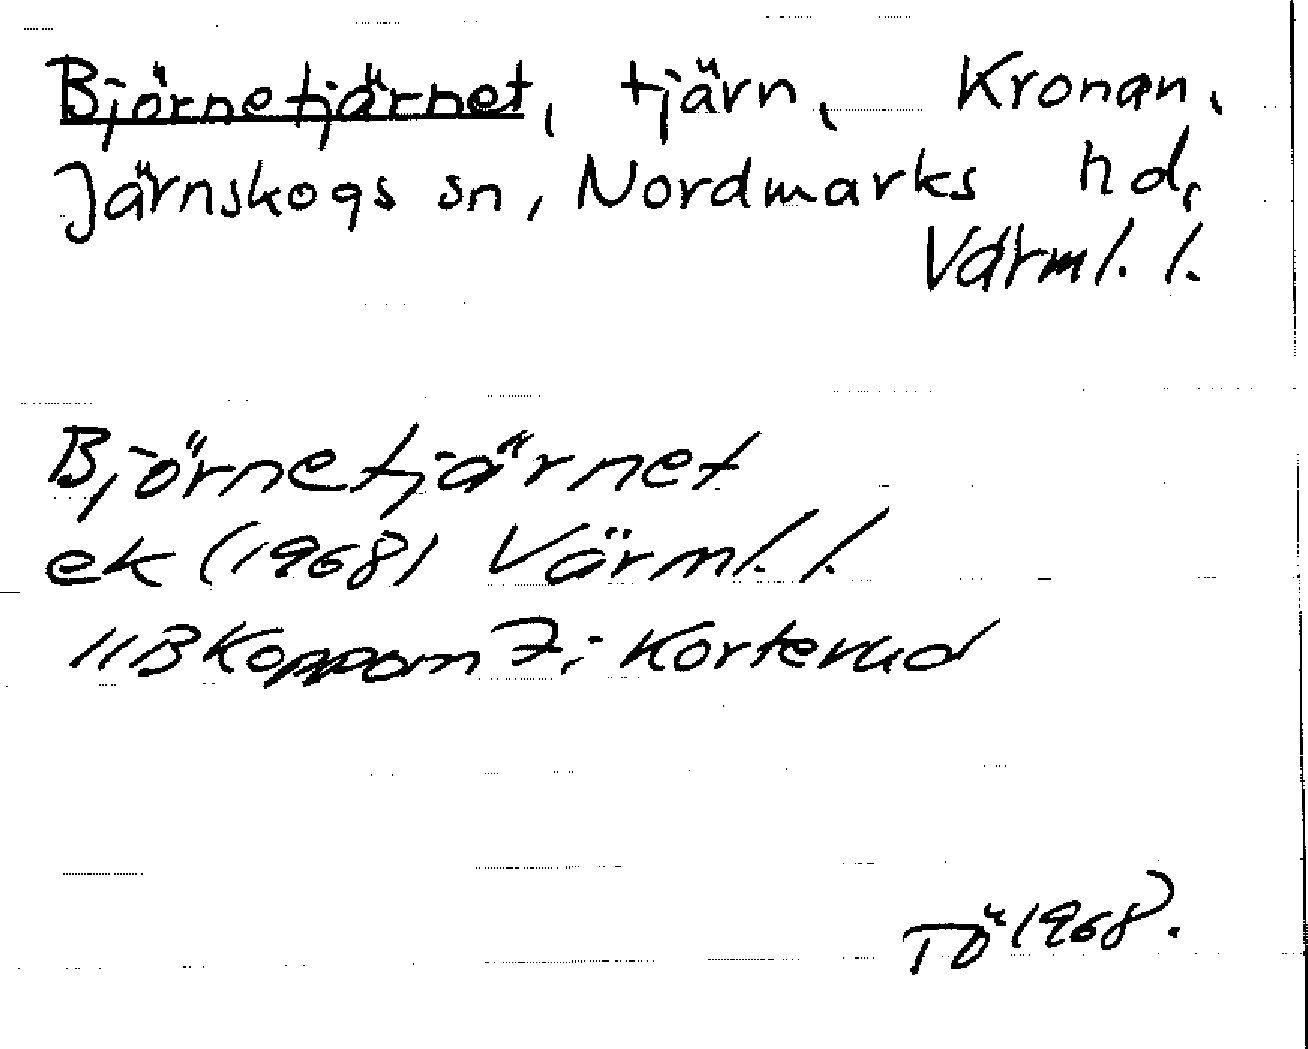 Björnetjärnet, tjärn, Kronan,
Järnskogs sn, Nordmarks hd,
Värml. l.
Björnetjärnet
ek (1968) Värml. l.
11B Koppom 7i Korterud
TÖ 1968.